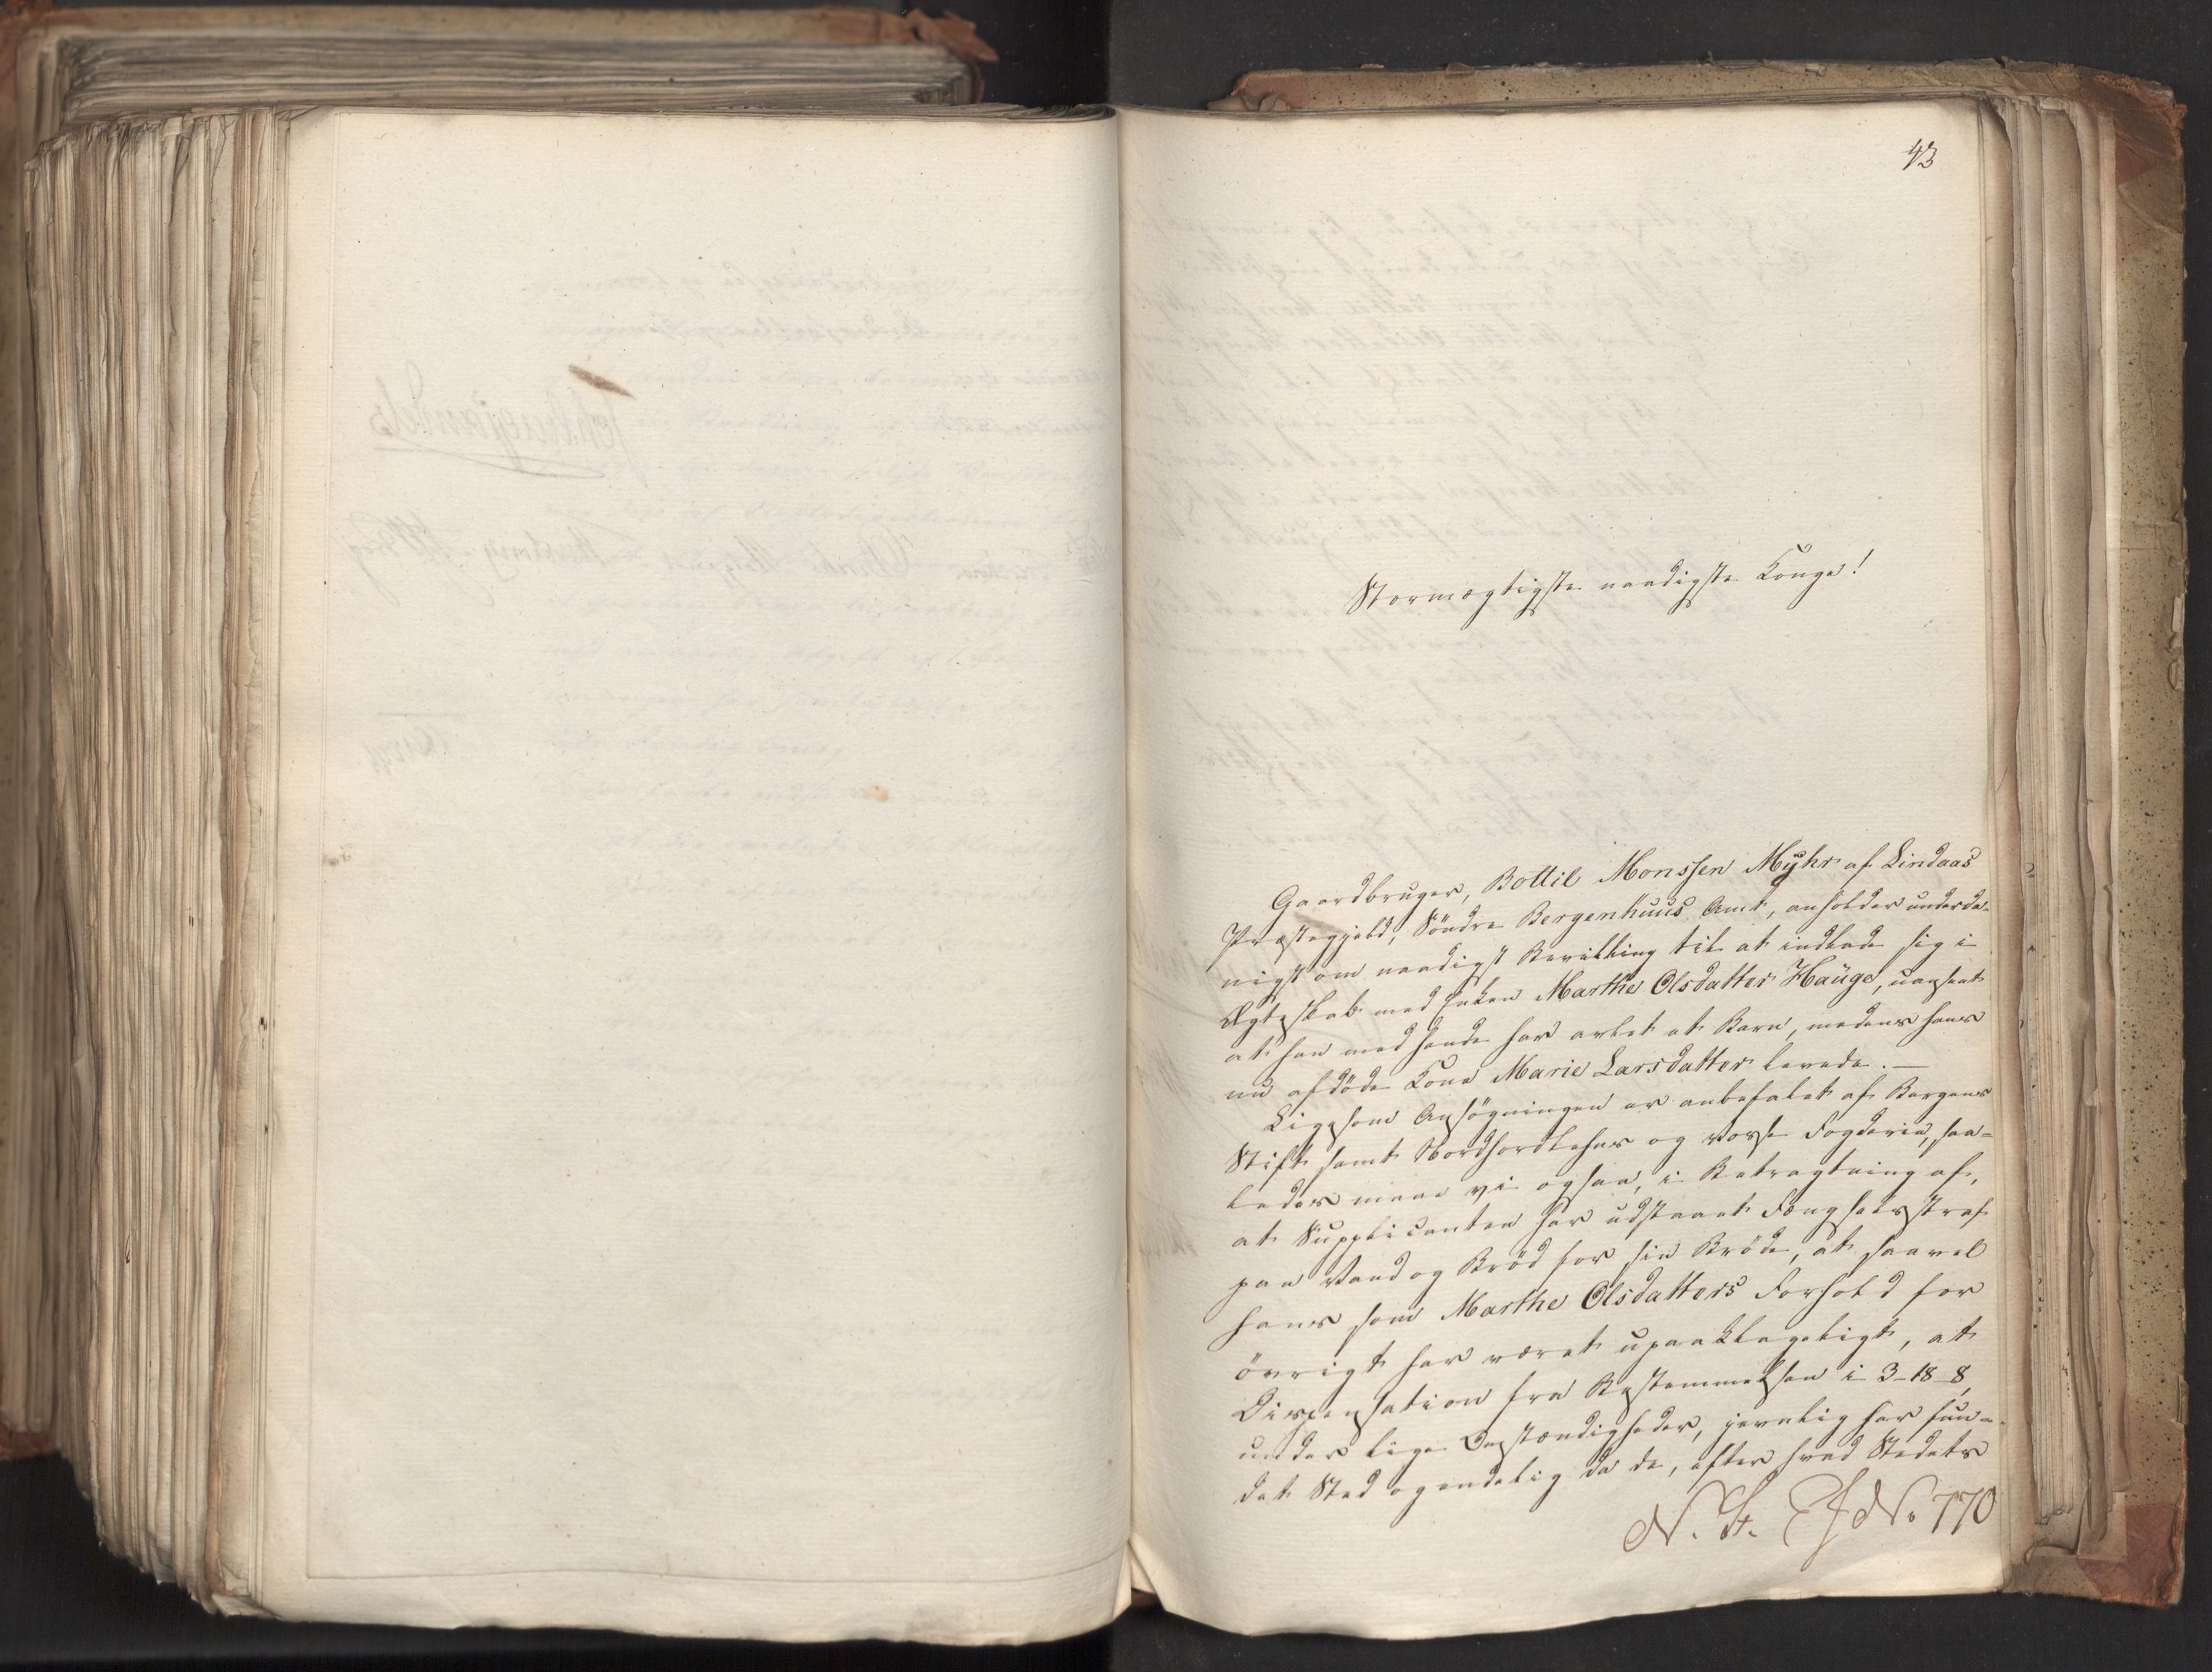 43
Stormægtigste naadigste Konge!
Gaardbruger, Bottil Monssen Myhr af Lindaas
Præstegjeld, Söndre Bergenhuus Amt, anholder underda-
nigst om naadigst Bevilling til at indlade sig i
Ægteskab med Enken Marthe Olsdatter Hauge, uanseet
at han med hende har avlet et Barn, medens hans
nu afdöde Kone Marie Larsdatter levede. —
Ligesom Ansögningen er anbefalet af Bergens
Stift samt Nordhordlehns og Vosse Fogderie, saa-
ledes mene vi ogsaa, i Betragtning af,
at Supplicanten har udstaaet Fængselsstraf
paa Vand og Bröd for sin Bröde, at saavel
hans som Marthe Olsdatters Forhold for
övrigt har været upaaklageligt, at
Dispensation fra Bestemmelsen i 3-18-8,
under lige Omstændigheder, jevnlig har fun-
det Sted og endelig da de, efter hvad Stedets
No 770